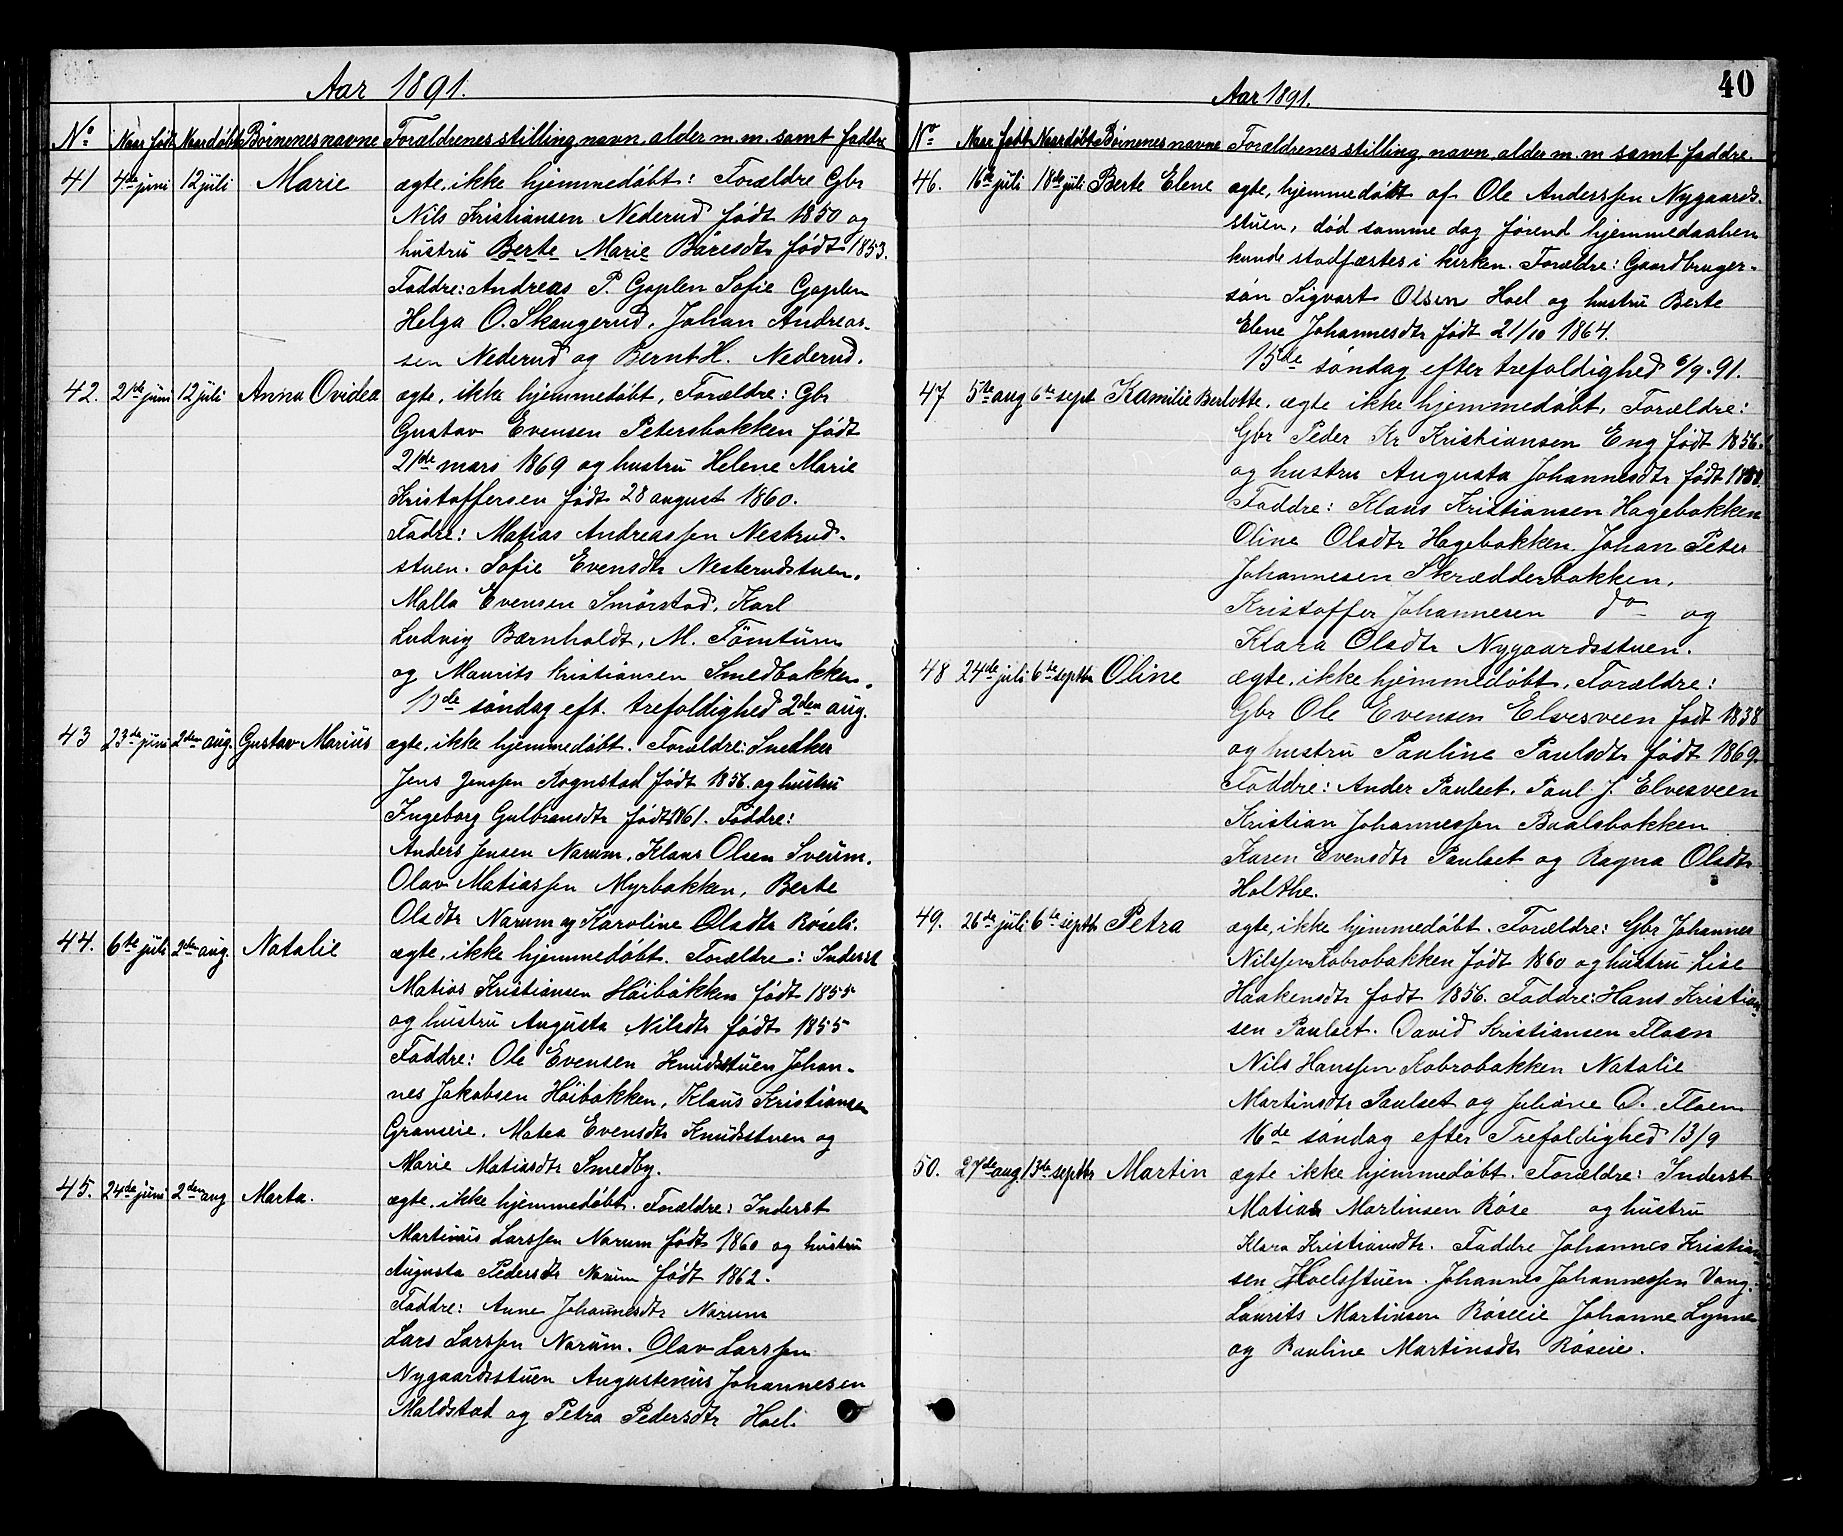 Aar 1891.
No Naar født Naar døbt Børnenes navne Forældrenes stilling, navn, alder m.m. samt faddre
41 4de juni 12 juli Marie ægte, ikke hjemmedøbt: Forældre Gbr
Nils Kristiansen Nederud født 1850 og
hustru Berte Marie Båresdtr født 1853.
Faddre: Andreas P. Goplen Sofie Goplen
Helga O. Skaugerud, Johan Andreas-
sen Nederud og Bernt H. Nederud.
42. 21de juni 12 juli Anna Ovidea ægte, ikke hjemmedøbt, Forældre: Gbr
Gustav Evensen Petersbakken født
21de mars 1869 og hustru Helene Marie
Kristoffersen født 28 august 1860.
Fadre: Matias Andreassen Nestrud-
stuen. Sofie Evensdtr Nesterudstuen.
Malla Evensen Smørstad, Karl
Ludvig Bærnholdt, M. Tömtum
og Maurits Kristiansen Smedbakken.
10de søndag eft. trefoldighed 2den aug.
43 23de juni 2den aug. Gustav Marius ægte, ikke hjemmedøbt. Forældre: Snedker
Jens Jenssen Rognstad født 1856. og hustru
Ingeborg Gulbransdtr født 1861. Faddre:
Anders Jensen Narum, Klaus Olsen Sveum.
Olav Matiassen Myrbakken, Berte
Olsdtr Narum og Karoline Olsdtr Röseli.
44. 6te juli 2den aug. Natalie ægte, ikke hjemmedøbt. Forældre: Inderst
Matias Kristiansen Höibakken født 1855
og hustru Augusta Nilsdtr født 1855
Faddre: Ole Evensen Knudsstuen Johan-
nes Jakobsen Höibakken, Klaus Kristiansen
Graneie. Matea Evensdtr Knudsstuen og
Marie Matiasdtr Smedby.
45. 24de juni 2den aug Marta. ægte, ikke hjemmedøbt. Forældre: Inderst
Martinus Larssen Narum født 1860 og hustru
Augusta Pedersdtr Narum født 1862.
Faddre: Anne Johannesdtr Narum
Lars Larssen Narum. Olav Larssen
Nygaardsstuen Augustenius Johannesen
Maldstad og Petra Pedersdtr Hoel.
40
Aar 1891.
No Naar født Naar døbt Børnenes navne Forældrenes stilling, navn, alder m.m samt faddre.
46. 16de juli 18de juli Berte Elene ægte, hjemmedøbt af Ole Anderssen Nygaards-
stuen, død samme dag førend hjemmedaaben
kunde stadfæstes i kirken. Forældre: Gaardbruger-
søn Sigvart Olsen Hoel og hustru Berte
Elene Johannesdtr født 21/10 1864.
15de søndag efter trefoldighed 6/9. 91.
47 5te aug 6te sept Kamilie Berlotte. ægte ikke hjemmedøbt, Forældre:
Gbr Peder Kr Kristiansen Eng født 1856.
og hustru Augusta Johannesdtr født
Faddre: Klaus Kristiansen Hagebakken
Oline Olsdtr Hagebakken. Johan Peter
Johannesen Skrædderbakken.
Kristoffer Johannesen do og
Klara Olsdtr Nygaardsstuen.
48 24de juli 6te septbr Oline ægte, ikke hjemmedøbt, Forældre:
Gbr Ole Evensen Elvesveen født 1838
og hustru Pauline Paulsdtr født 1869.
Faddre: Ander Paulset. Paul J. Elvesveen
Kristian Johannessen Baalsbakken
Karen Evensdtr Paulset og Ragna Olsdtr
Holthe.
49. 26de juli 6te septbr Petra ægte, ikke hjemmedøbt. Forældre: Gbr Johannes
Nilssen Kobrobakken født 1860 og hustru Lise
Haakensdtr født 1856. Faddre: Hans Kristian-
sen Paulset. David Kristiansen Floen
Nils Hanssen Kobrobakken Natalie
Martinsdtr Paulset og Juliane O. Floen
16de søndag efter Trefoldighed 13/9
50. 27de aug 13de septbr Martin ægte ikke hjemmedøbt. Forældre: Inderst
Matias Martinsen Röse og hustru
Klara Kristiansdtr. Faddre Johannes Kristian-
sen Hoelsstuen. Johannes Johannessen Vang.
Laurits Martinsen Röseeie Johanne Lynne
og Pauline Martinsdtr Röseie.